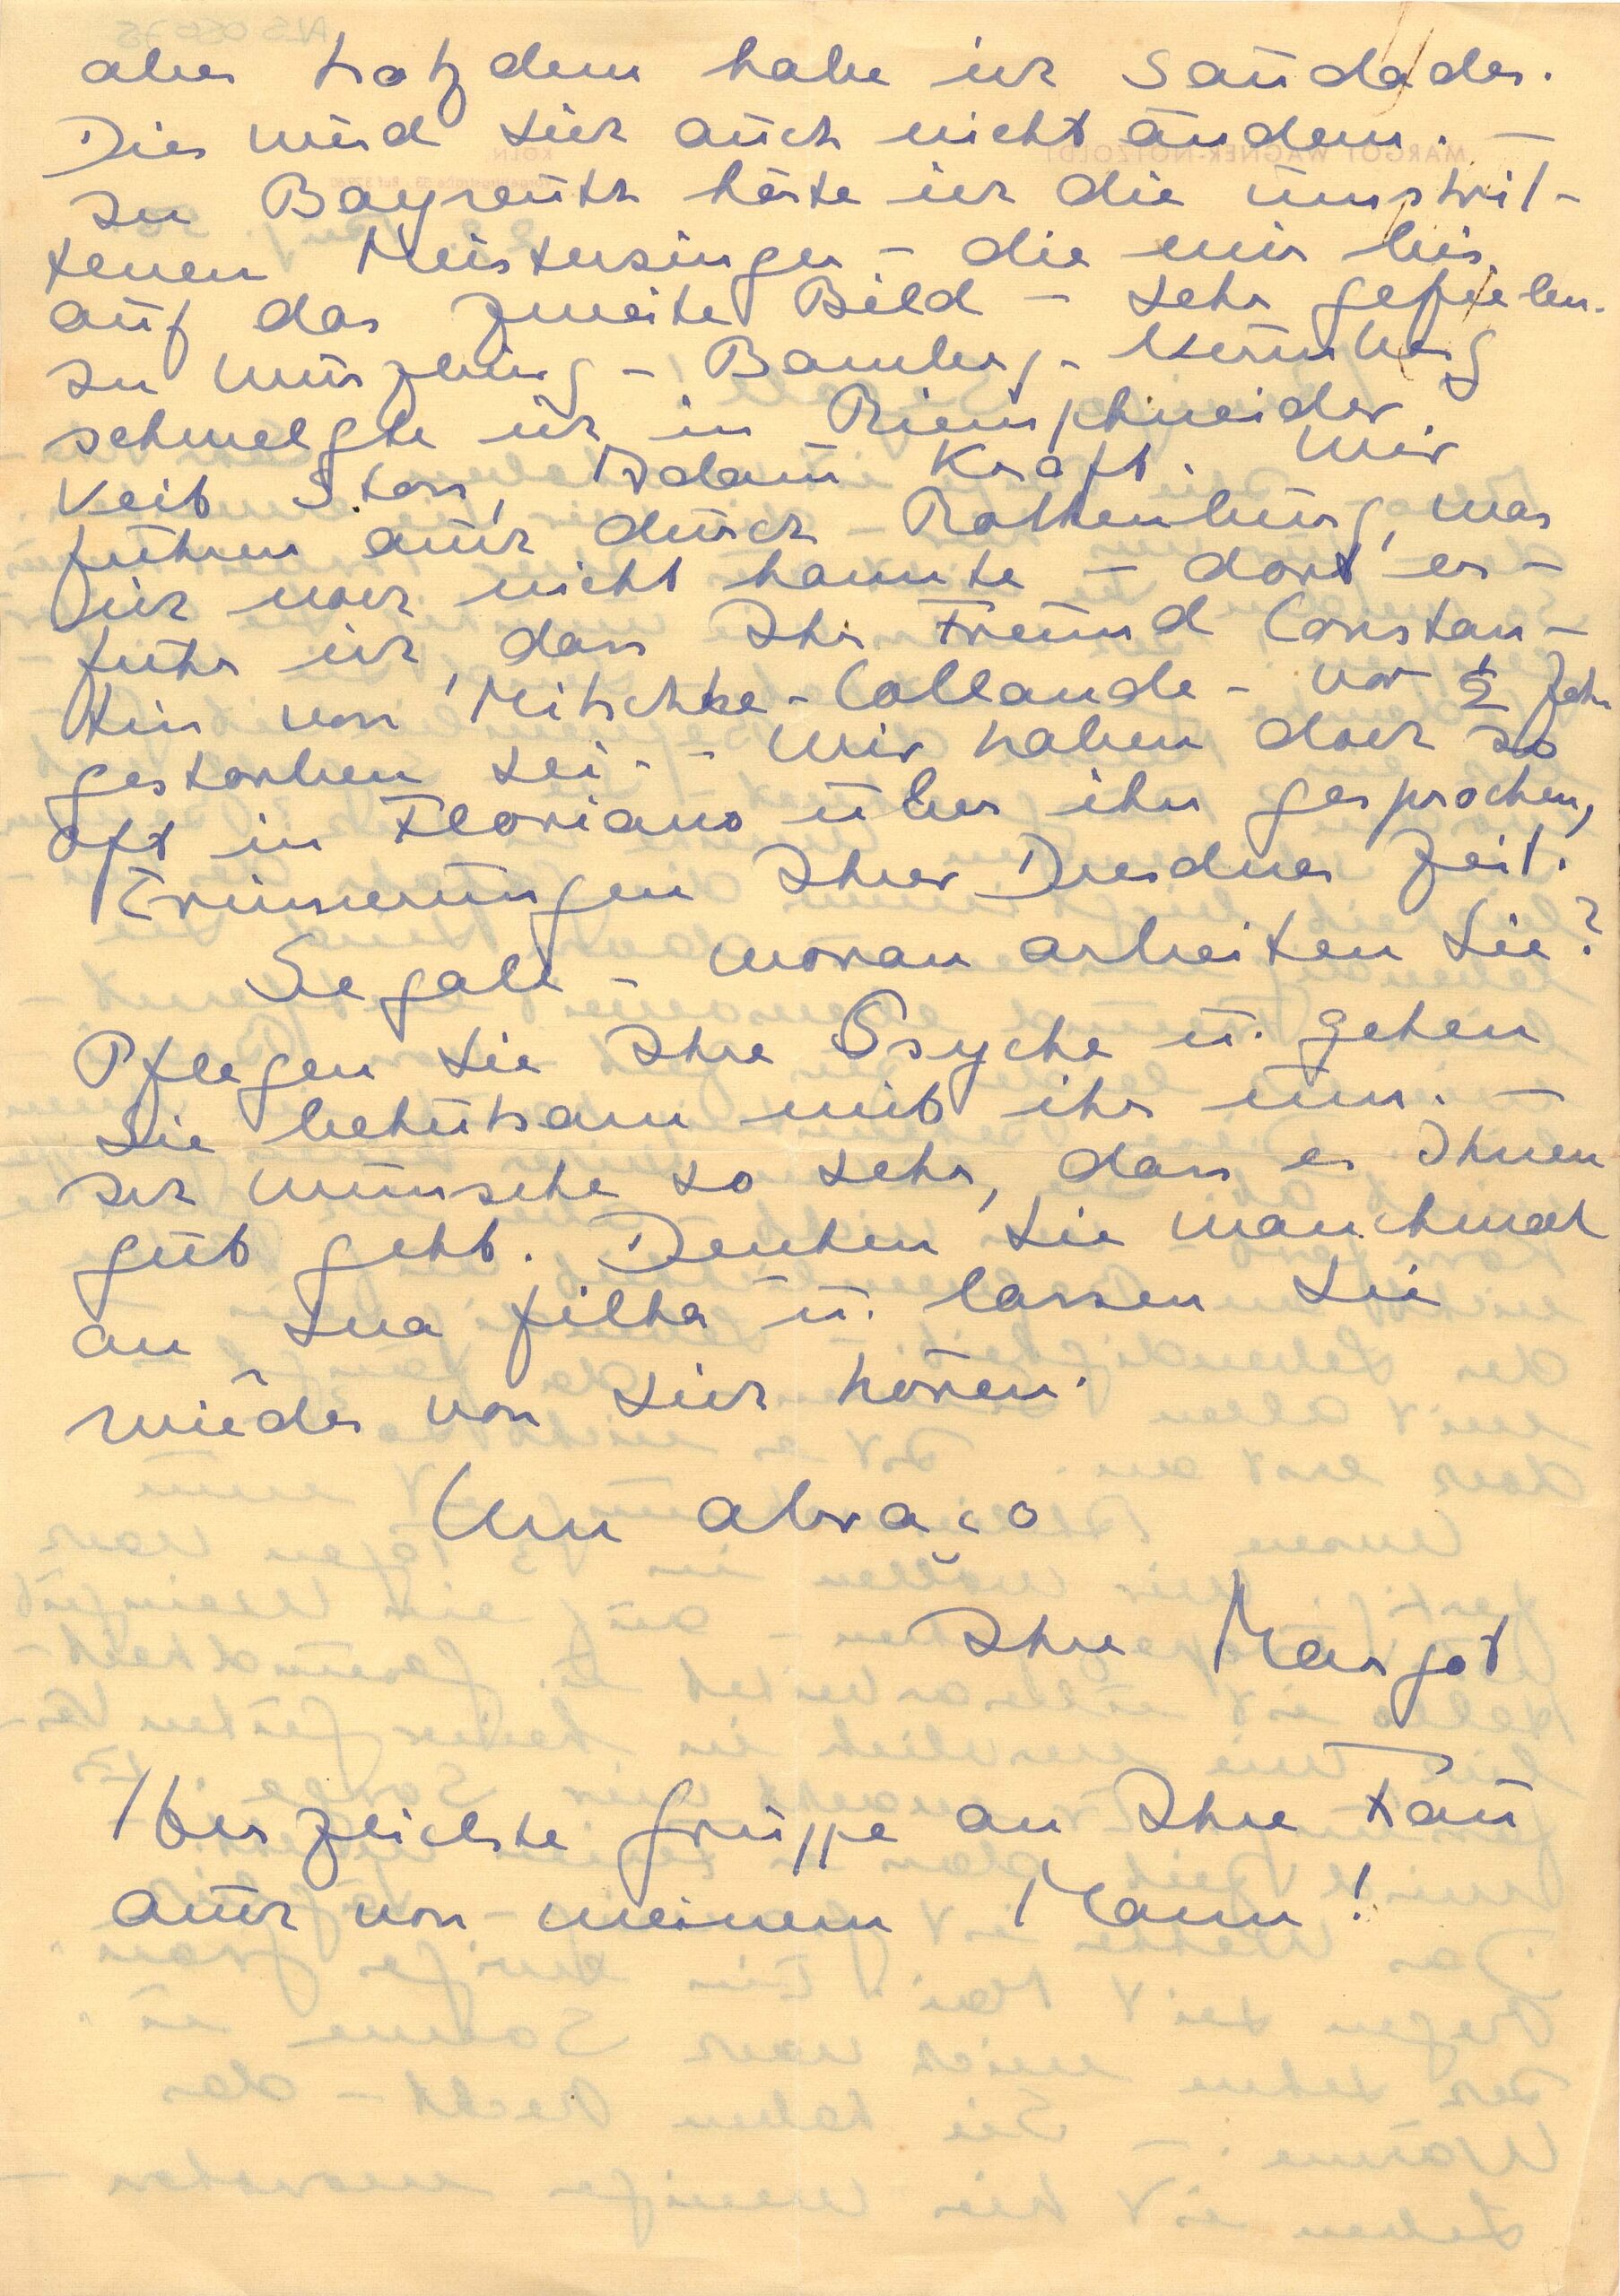 aber trotzdem habe ich Saudades.
Dies wird sich auch nicht ändern. –
In Bayreuth hörte ich die umstrit-
tenen Meistersinger – die mir bis
auf das zweite Bild – sehr gefielen.
In Würzburg – Bamberg – Nürnberg
schwelgte ich in Riemschneider,
Veit Stoss, Adam Kraft. Wir
fuhren auch durch Rothenburg, was
ich noch nicht kannte – dort er-
fuhr ich, dass Ihr Freund Constan-
tin von Mitschke-Collande – vor ½ Jahr
gestorben sei. – Wir haben doch so
oft in Floriano über ihn gesprochen,
Erinnerungen Ihrer Dresdner Zeit.
Segall – woran arbeiten Sie?
Pflegen Sie Ihre Psyche u. gehen
Sie behutsam mit ihr um. –
Ich wünsche so sehr, dass es Ihnen
gut geht. Denken Sie manchmal
an sua filha u. lassen Sie
wieder von sich hören.
Um abraço
Ihre Margot
Herzlichste Grüsse an Ihre Frau
auch von meinem Mann!